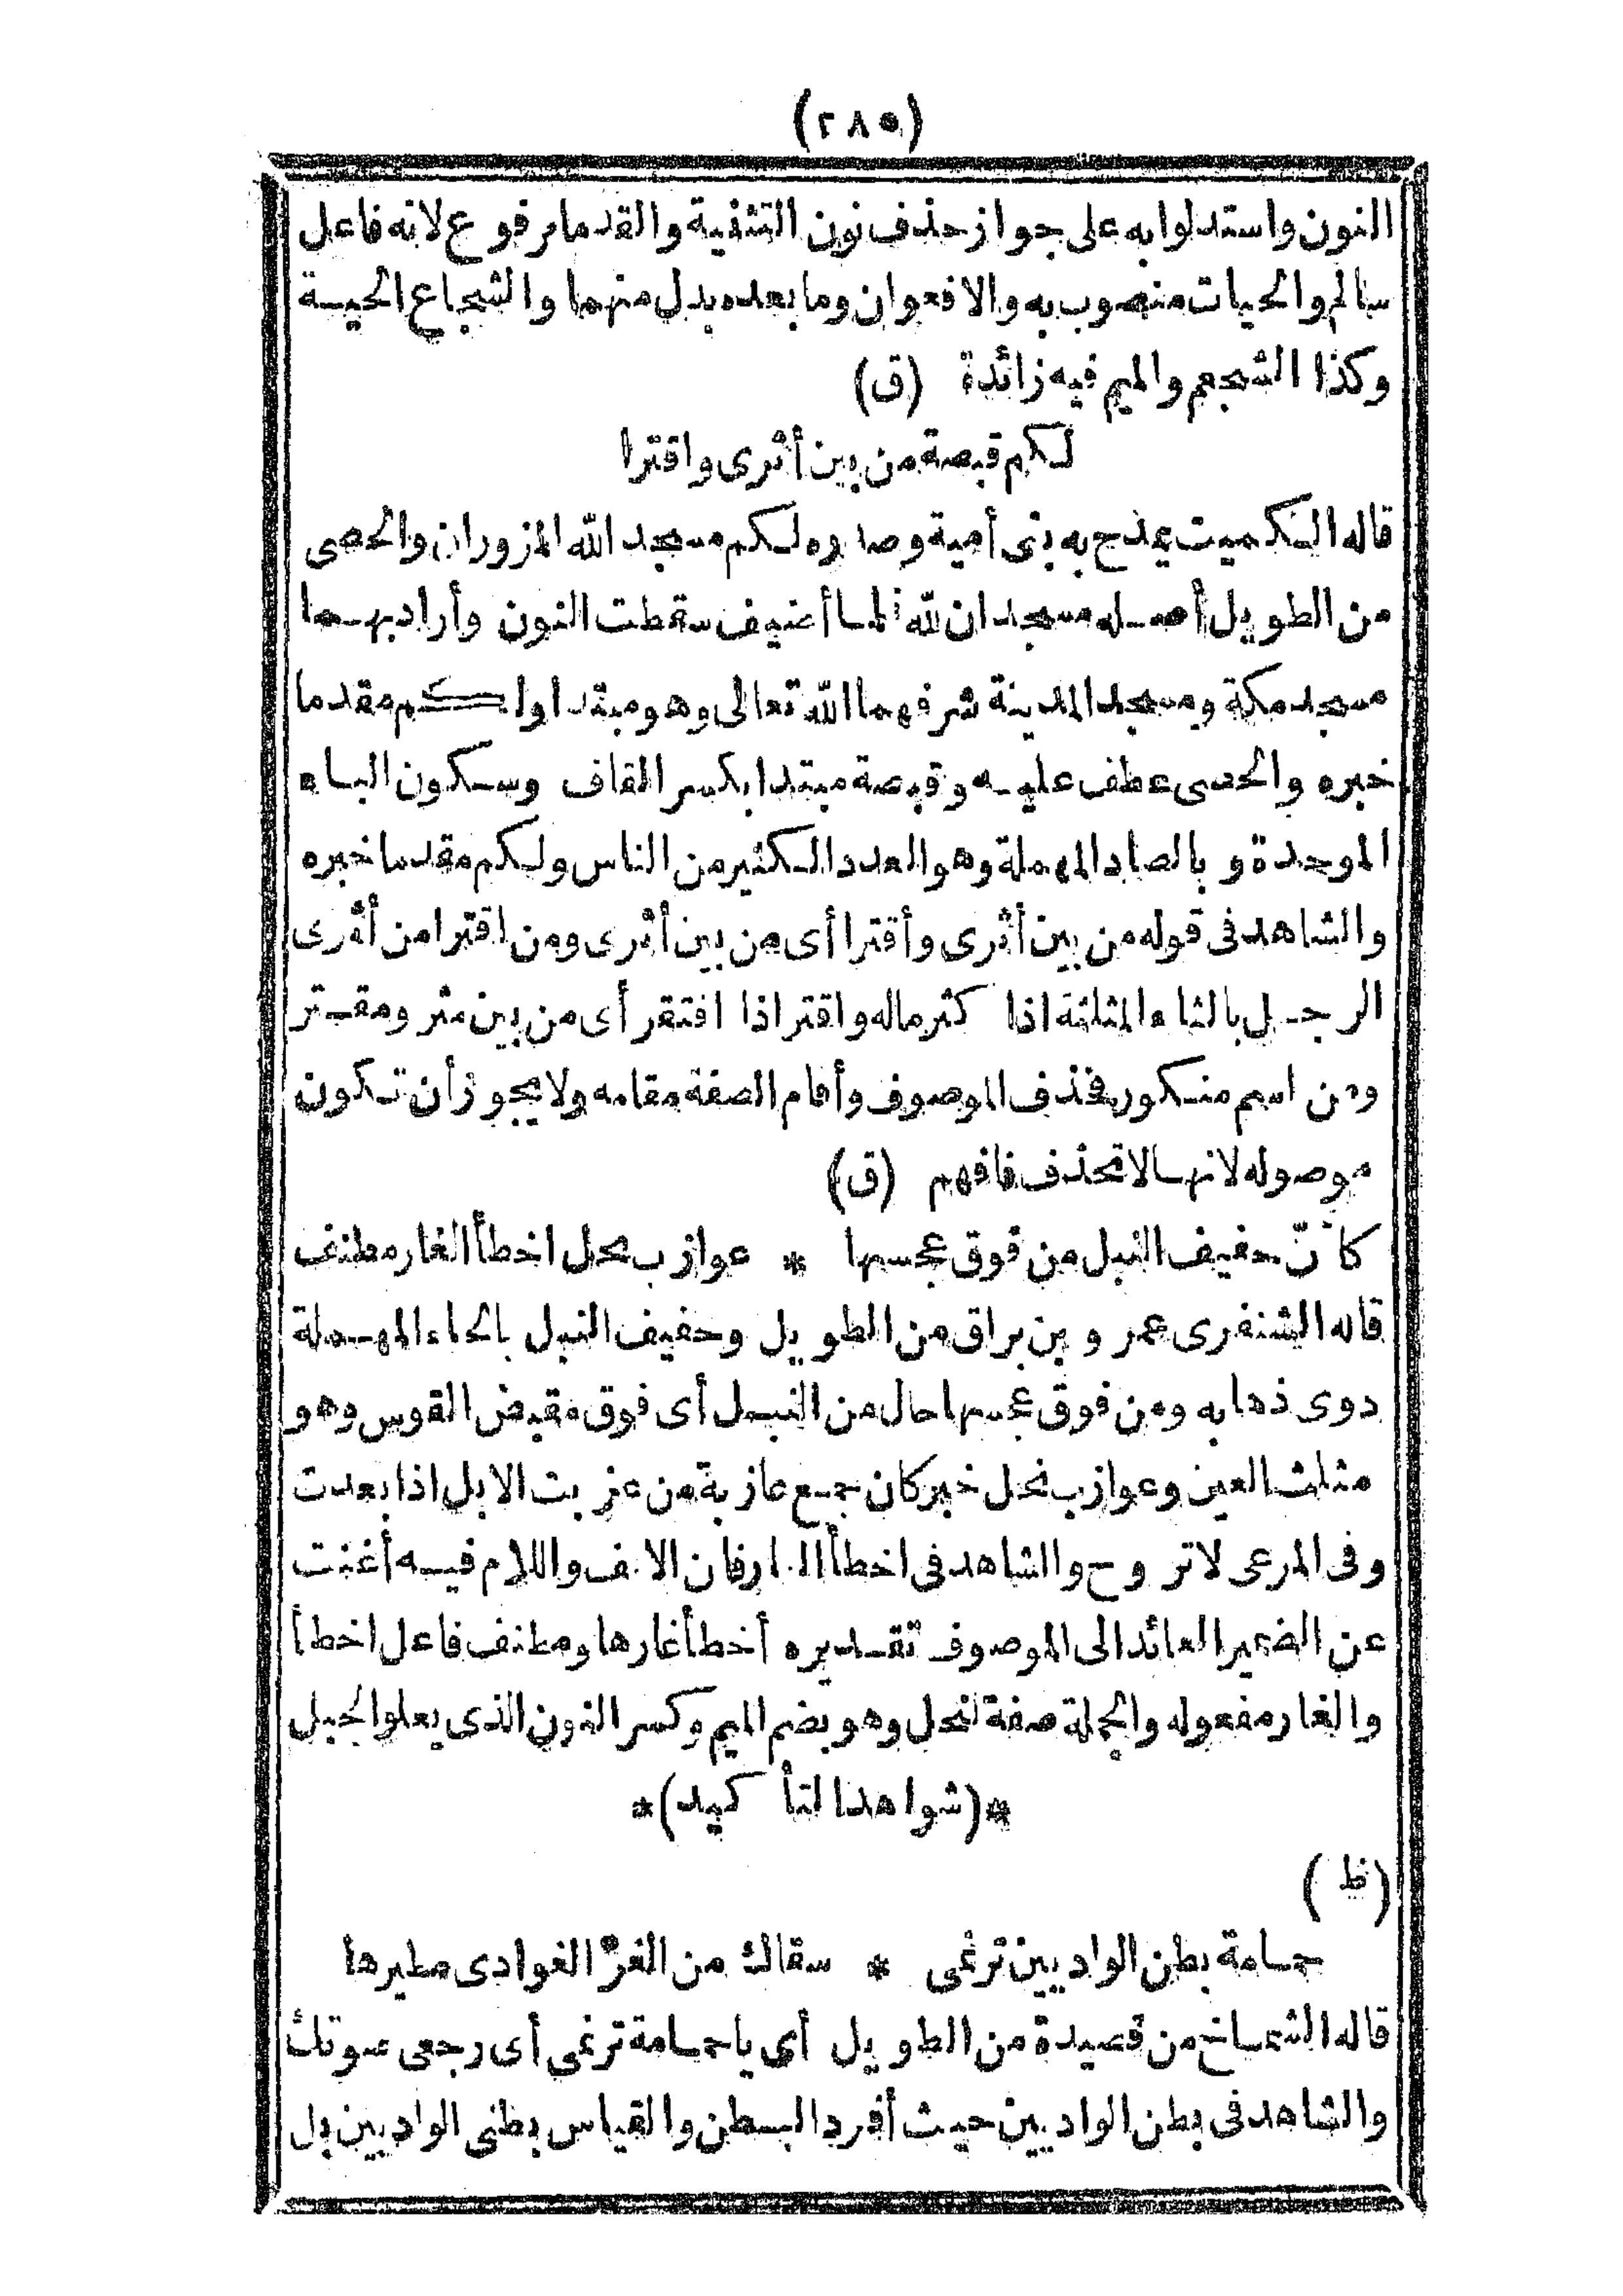 (٢٨٥)
النون واستدلوا به على جواز حذف نون التثنية والقدما مرفوع لانه فاعل
سالم والحيات منصوب به والافعوان وما بعده بدل منهما والشجاع الحيـة
وكذا الشجعم والميم فيه زائدة (ق)
لكم قبصة من بين أثرى واقترا
قاله الكميت يمدح به بنى أمية وصدره لكم مسجد الله المزوران والحصى
من الطويل أصـله مسجدان لله فلما أضيف سقطت النون وأراد بهـما
مسجد مكة ومسجد المدينة شرفهما الله تعالى وهو مبتدا ولكم مقدما
خبره والحصى عطف عليـه وقبصة مبتدا بكسر القاف وسكون الباء
الموحدة وبالصاد المهملة وهو العدد الكثير من الناس ولكم مقدما خبره
والشاهد فى قوله من بين أثرى وأقترا أى من بين أثرى ومن اقترا من أثرى
الرجـل بالثاء المثلثة اذا كثر ماله واقتر اذا افتقر أى من بين مثر ومقـتر
ومن اسم منكور فحذف الموصوف وأقام الصفة مقامه ولا يجوز أن تكون
موصوله لانهـا لا تحذف فافهم (ق)
كأنّ حفيف النبل من فوق عجسها * عوازب نحل اخطأ الغار مطنف
قاله الشنفرى عمرو بن براق من الطويل وحفيف النبل بالحاء المهـملة
دوى ذهابه ومن فوق عجسها حال من النبـل أى فوق مقبض القوس وهو
مثلث العين وعوازب نحل خبر كان جمـع عازبة من عزبت الابل اذا بعدت
وفى المرعى لا تروح والشاهد فى اخطأ الغار فان الالف واللام فيـه أغنت
عن الضمير العائد الى الموصوف تقـديره أخطأ غارها ومطنف فاعل اخطأ
والغار مفعوله والجملة صفة لنحل وهو بضم الميم وكسر النون الذى يعلو الجبل
*(شواهد التأكيد)*
(ظ)
حمـامة بطن الواديين ترنمى * سقاك من الغرّ الغوادى مطيرها
قاله الشمـاخ من قصيدة من الطويل أى يا حمـامة ترنمى أى رجعى صوتك
والشاهد فى بطن الواديين حيث أفرد البـطن والقياس بطنى الواديين بل